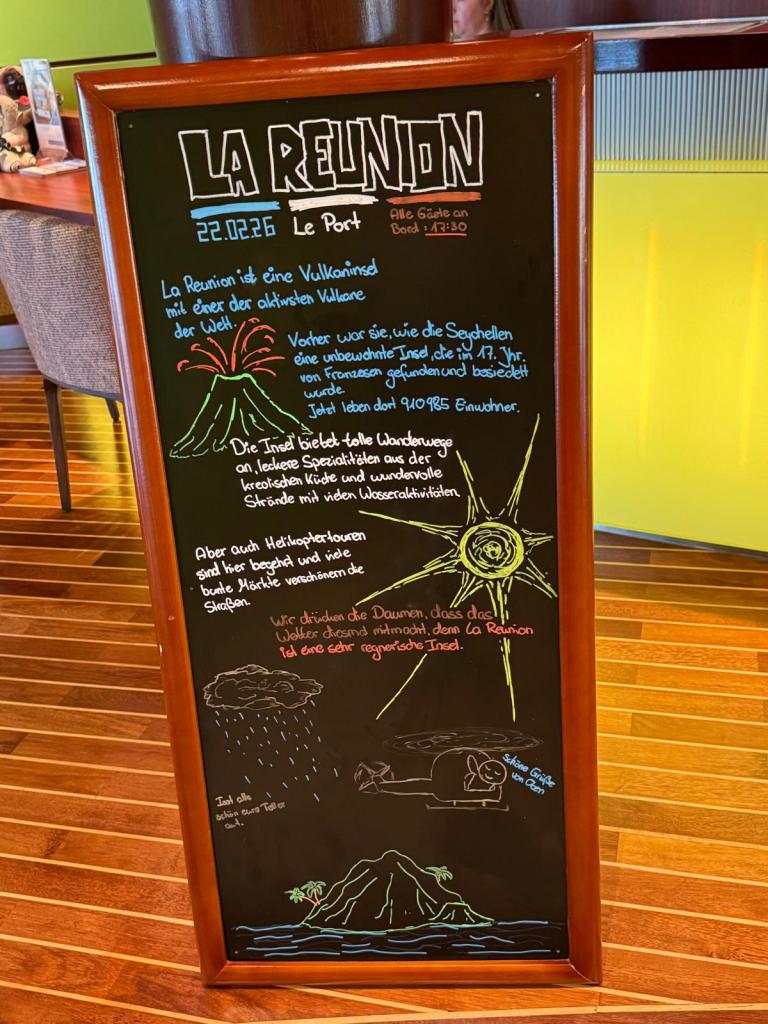 LA REUNION
22.02.26
Le Port
Alle Gäste an
Bord : 17:30
La Reunion ist eine Vulkaninsel
mit einer der aktivsten Vulkane
der Welt.
Vorher war sie, wie die Seychellen
eine unbewohnte Insel, die im 17. Jhr.
von Franzosen gefunden und besiedelt
wurde.
Jetzt leben dort 910985 Einwohner.
Die Insel bietet tolle Wanderwege
an, leckere Spezialitäten aus der
kreolischen Küche und wundervolle
Strände mit vielen Wasseraktivitäten.
Aber auch Helikoptertouren
sind hier begehrt und viele
bunte Märkte verschönern die
Straßen.
Wir drücken die Daumen, dass das
Wetter diesmal mitmacht, denn La Reunion
ist eine sehr regnerische Insel.
Schöne Grüße
von Oben
Isst alle
schön eure Teller
auf.